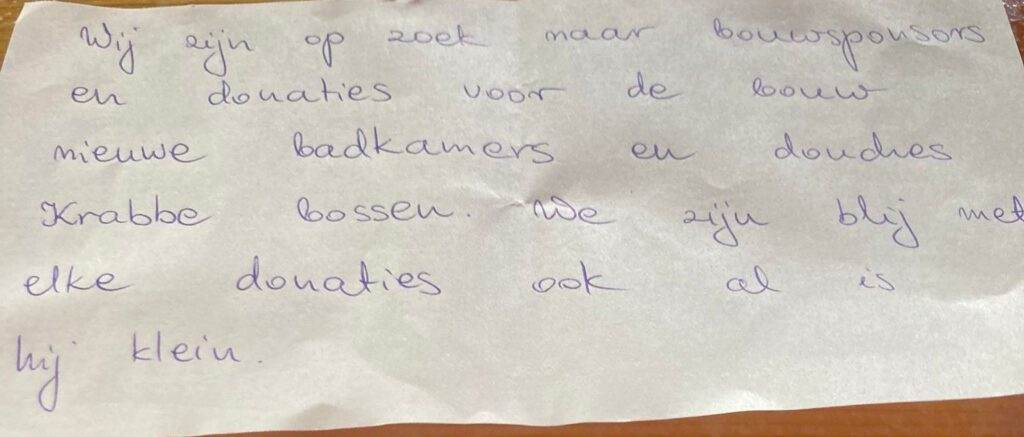 Wij zijn op zoek naar bouwsponsors
en donaties voor de bouw
nieuwe badkamers en douches
Krabbe bossen. We zijn blij met
elke donaties ook al is
hij klein.